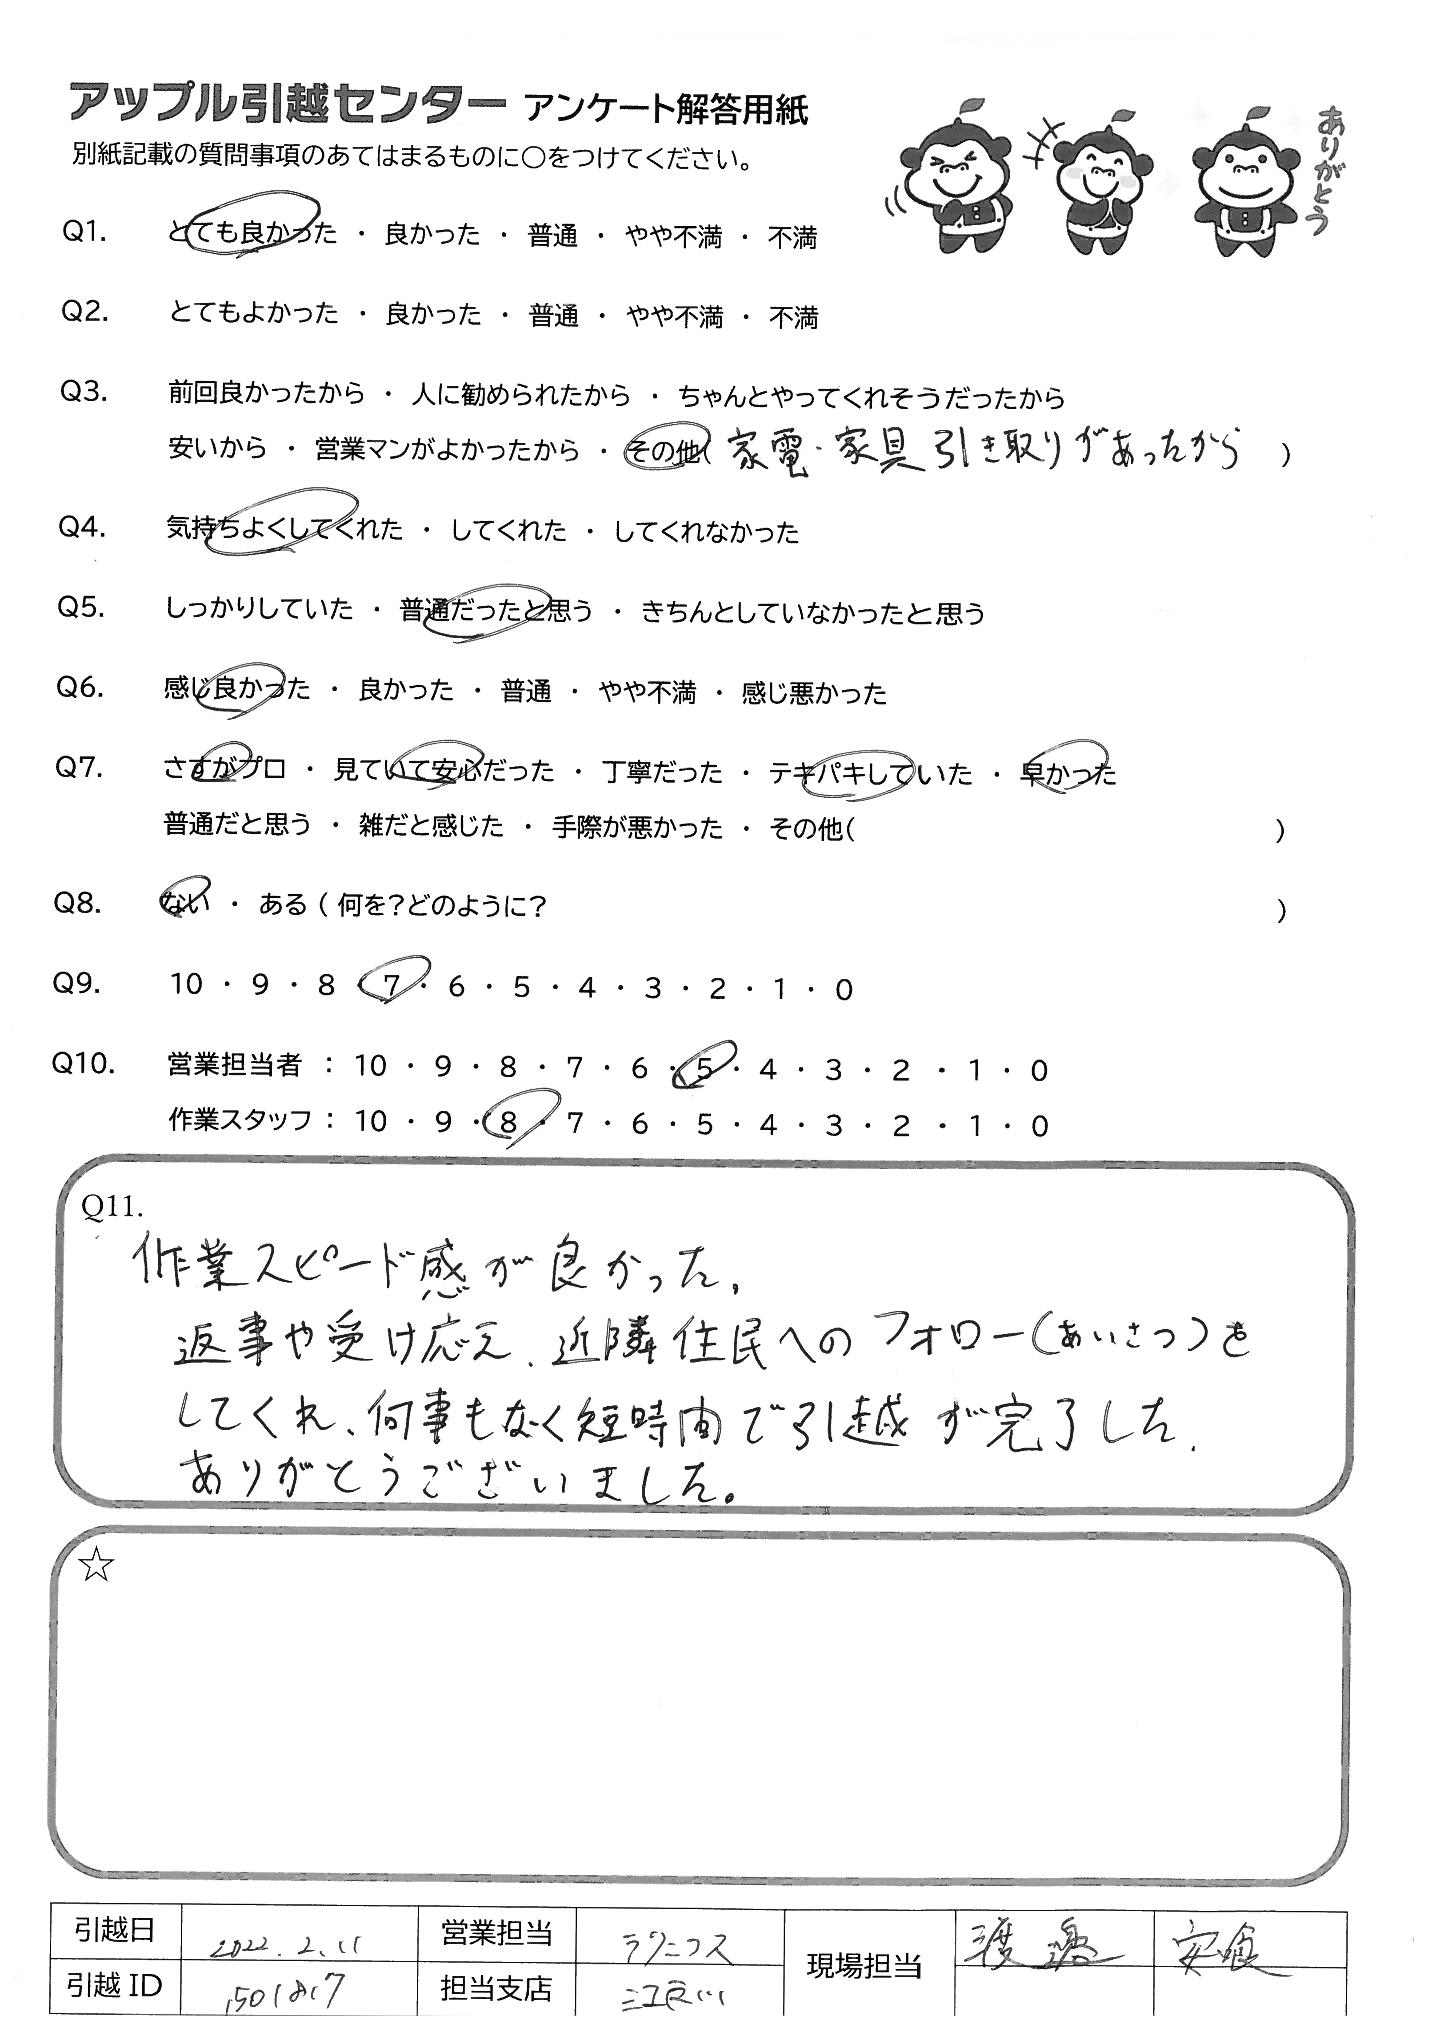 アップル引越センター アンケート解答用紙
別紙記載の質問事項のあてはまるものに○をつけてください。
ありがとう
Q1. とても良かった ・ 良かった ・ 普通 ・ やや不満 ・ 不満
Q2. とてもよかった ・ 良かった ・ 普通 ・ やや不満 ・ 不満
Q3. 前回良かったから ・ 人に勧められたから ・ ちゃんとやってくれそうだったから
安いから ・ 営業マンがよかったから ・ その他( 家電・家具引き取りがあったから )
Q4. 気持ちよくしてくれた ・ してくれた ・ してくれなかった
Q5. しっかりしていた ・ 普通だったと思う ・ きちんとしていなかったと思う
Q6. 感じ良かった ・ 良かった ・ 普通 ・ やや不満 ・ 感じ悪かった
Q7. さすがプロ ・ 見ていて安心だった ・ 丁寧だった ・ テキパキしていた ・ 早かった
普通だと思う ・ 雑だと感じた ・ 手際が悪かった ・ その他( )
Q8. ない ・ ある ( 何を?どのように? )
Q9. 10 ・ 9 ・ 8 ・ 7 ・ 6 ・ 5 ・ 4 ・ 3 ・ 2 ・ 1 ・ 0
Q10. 営業担当者 : 10 ・ 9 ・ 8 ・ 7 ・ 6 ・ 5 ・ 4 ・ 3 ・ 2 ・ 1 ・ 0
作業スタッフ : 10 ・ 9 ・ 8 ・ 7 ・ 6 ・ 5 ・ 4 ・ 3 ・ 2 ・ 1 ・ 0
Q11.
作業スピード感が良かった。
返事や受け応え、近隣住民へのフォロー(あいさつ)を
してくれ、何事もなく短時間で引越が完了した。
ありがとうございました。
☆
引越日 2022.2.11 営業担当 現場担当 渡邉 安食
引越 ID 担当支店 江良川